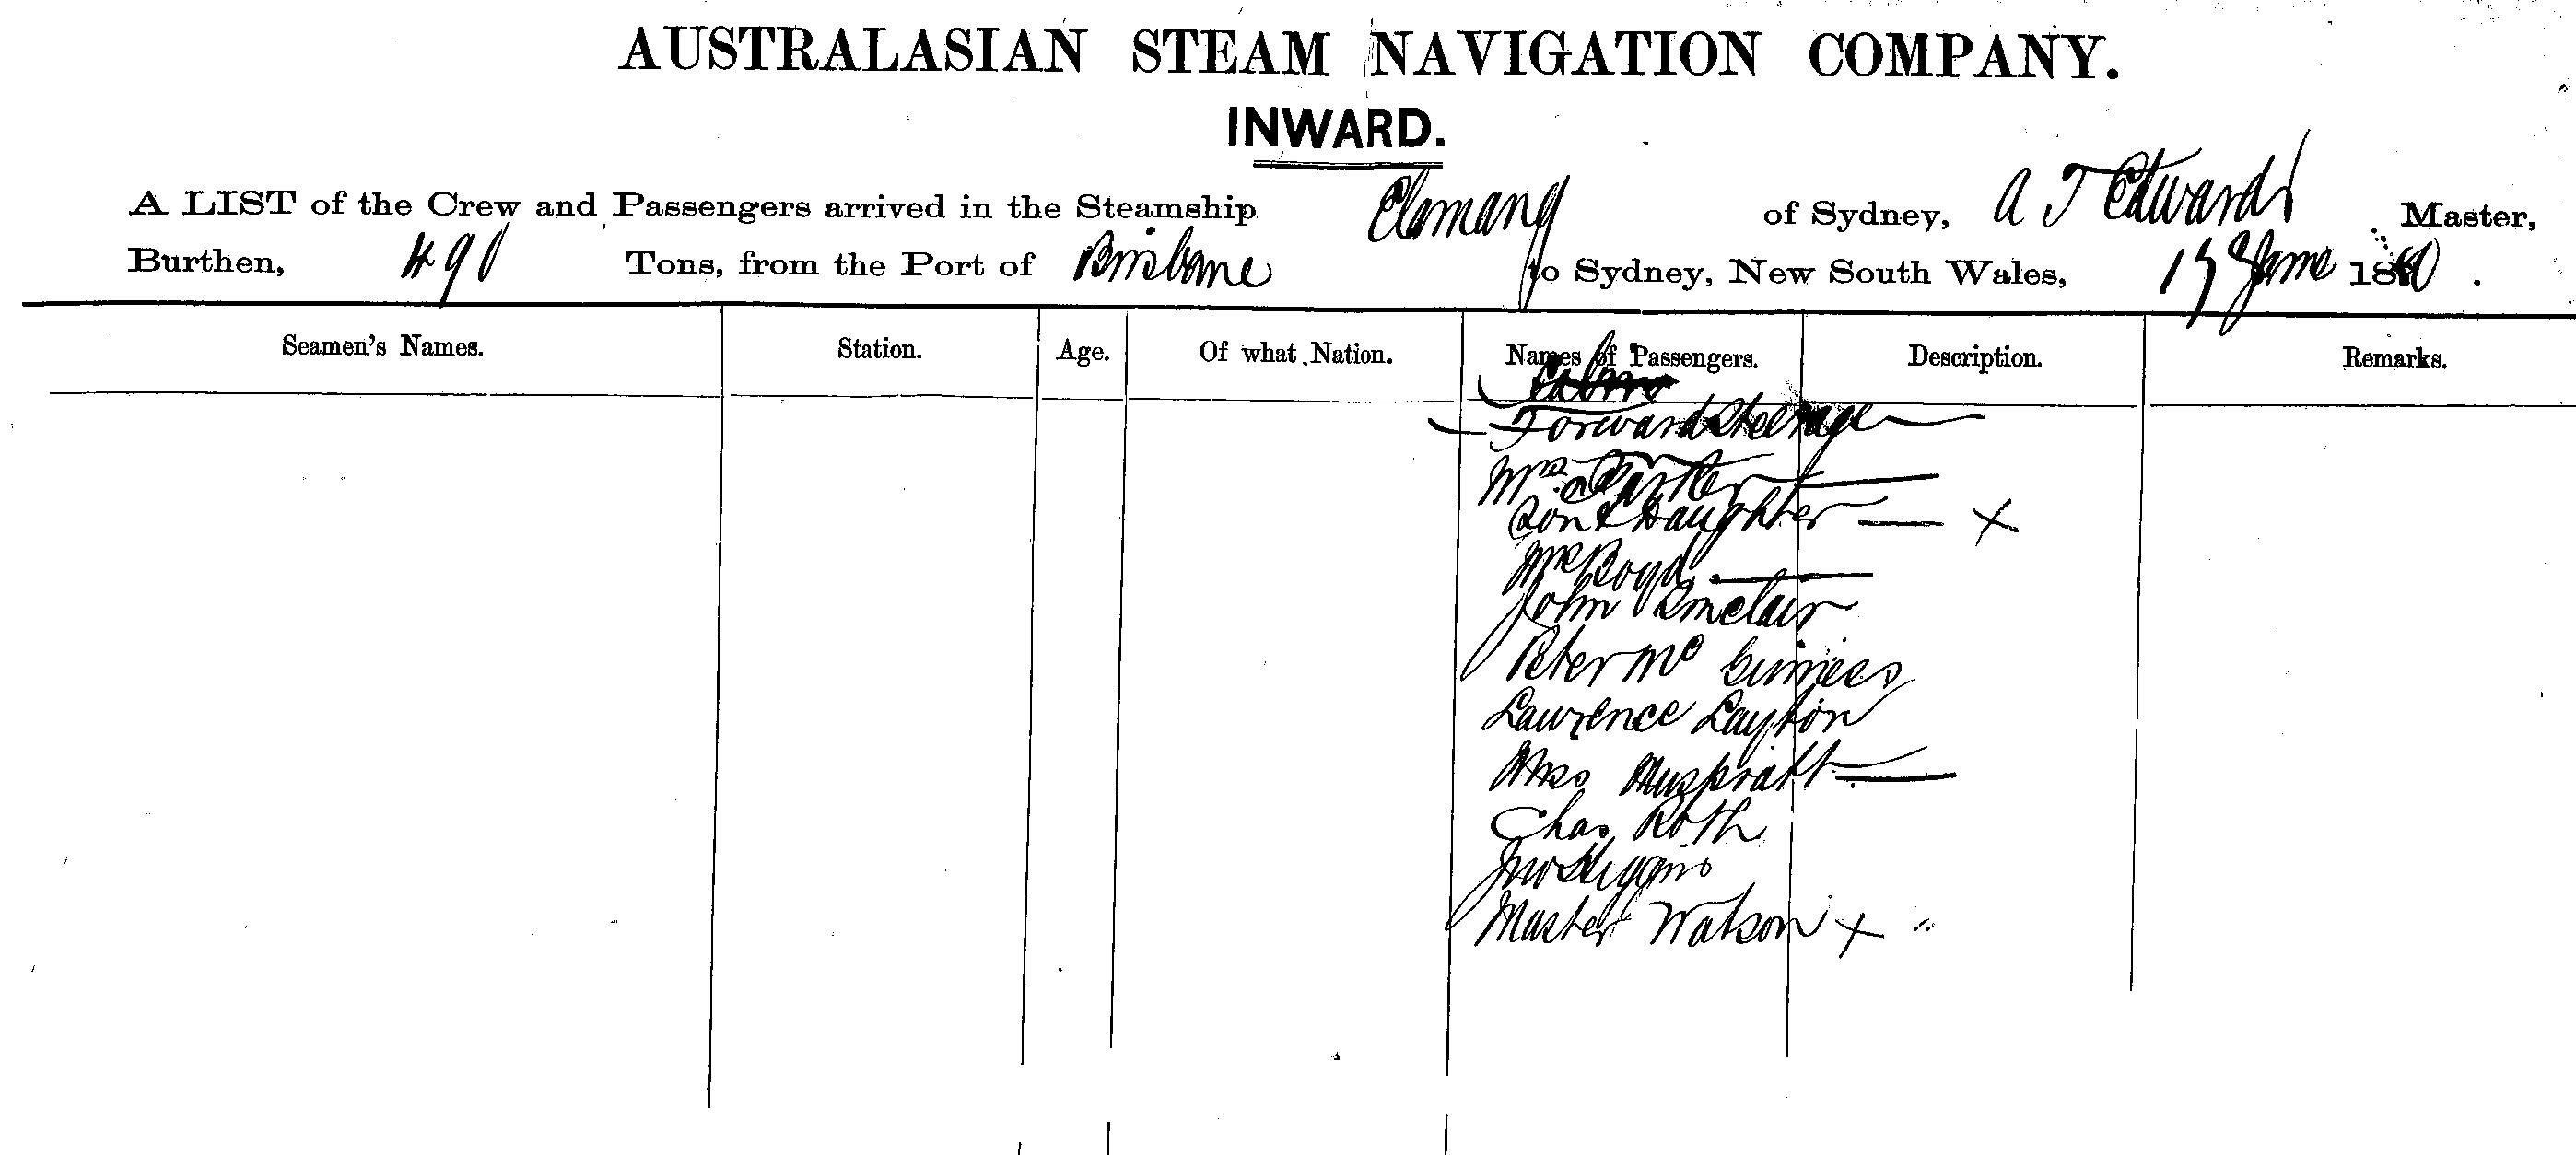 AUSTRALASIAN STEAM NAVIGATION COMPANY.
INWARD.
A LIST of the Crew and Passengers arrived in the Steamship Elamang of Sydney, A T Edwards Master,
Burthen, 490 Tons, from the Port of Brisbane to Sydney, New South Wales, 17 June 1880.
Seamen's Names. Station. Age. Of what Nation. Names of Passengers. Description. Remarks.
Forward Steerage
Mrs
Son & Daughter — x
Boyd
John Sinclair
Peter Mc Guiness
Lawrence Layton
Muspratt
Chas Roth
Jno Higgins
Master Watson x "